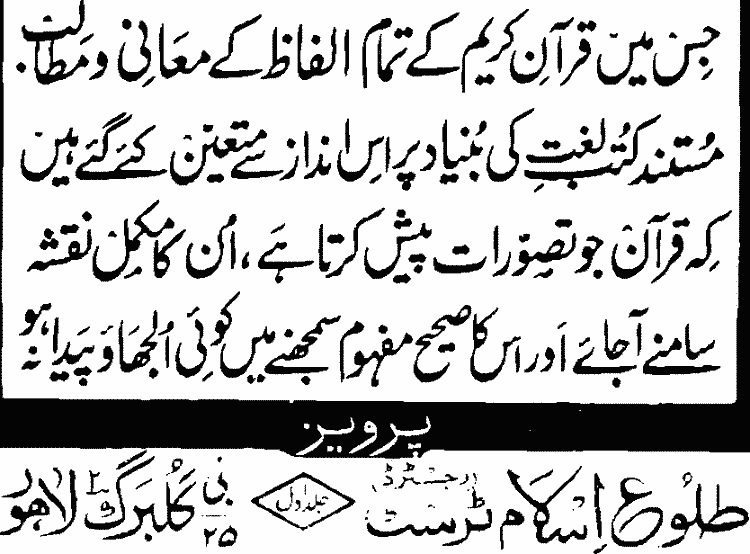 جس میں قرآنِ کریم کے تمام الفاظ کے معانی و مطالب
مُستند کتبِ لغت کی بُنیاد پر اس انداز سے متعین کئے گئے ہیں
کہ قرآن جو تصوّرات پیش کرتا ہے، اُن کا مکمل نقشہ
سامنے آ جائے اور اس کا صحیح مفہوم سمجھنے میں کوئی اُلجھاؤ پیدا نہ ہو
پرویز
طلوعِ اسلام ٹرسٹ (رجسٹرڈ) جلد اول ۲۵ بی گلبرگ ۲ لاہور